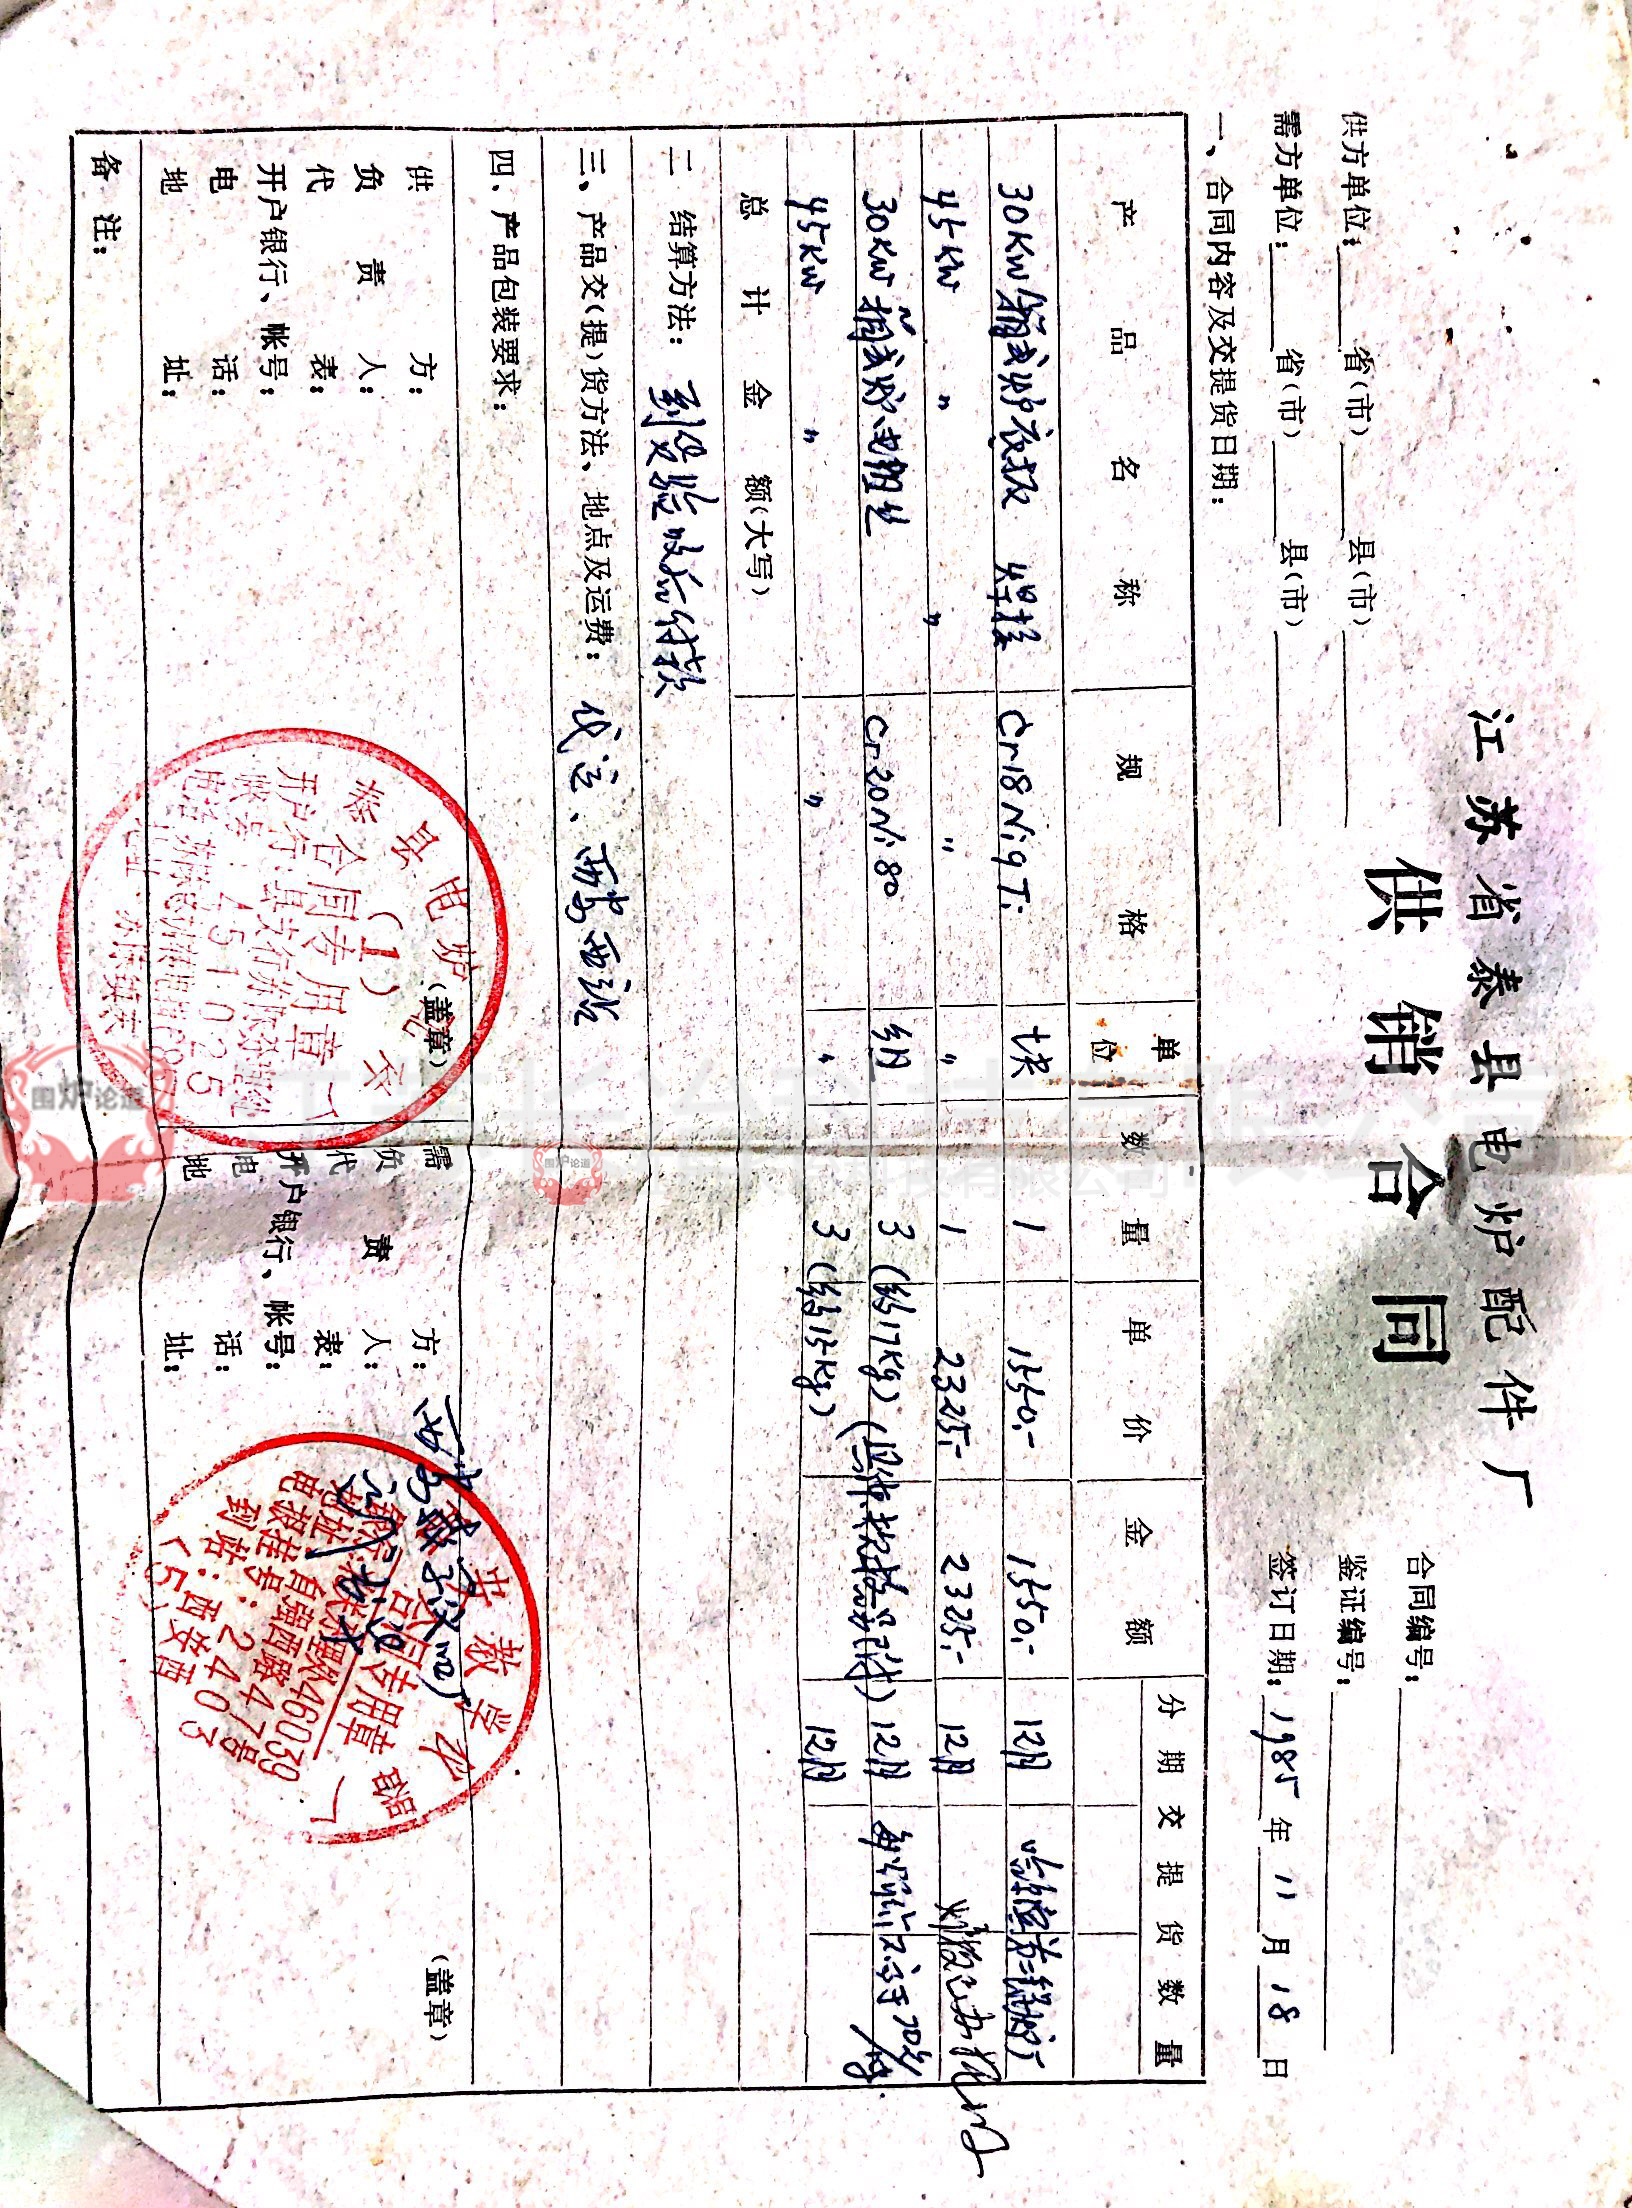 江苏省泰县电炉配件厂
供销合同
合同编号:
鉴证编号:
签订日期: 1985 年 11 月 18 日
供方单位: 省(市) 县(市)
需方单位: 省(市) 县(市)
一、合同内容及交提货日期:
产品名称 规格 单位 数量 单价 金额 分期交提货数量
30KW箱式炉底板 焊接 Cr18Ni9Ti 块 1 1550.- 1550.- 12月
45KW 〃 〃 〃 〃 1 2325.- 2325.- 12月
30KW箱式炉电阻丝 Cr20Ni80 组 3 (约17Kg) 12月
45KW 〃 〃 〃 3 (约15Kg) 12月
总计金额(大写)
二 结算方法: 到货验收后付款
三、产品交(提)货方法、地点及运费: 代运、西安西站
四、产品包装要求:
供方: (盖章)
负责人:
代表:
开户银行、帐号:
电话:
地址:
需方: (盖章)
负责人:
代表:
开户银行、帐号:
电话:
地址:
泰县电炉
合同专用章
(1)
帐号: 4510025
合同专用章
46039
自强西路47号
电报挂号: 2403
到站: 西安西
(5)
备注:
围炉论道
围炉论道